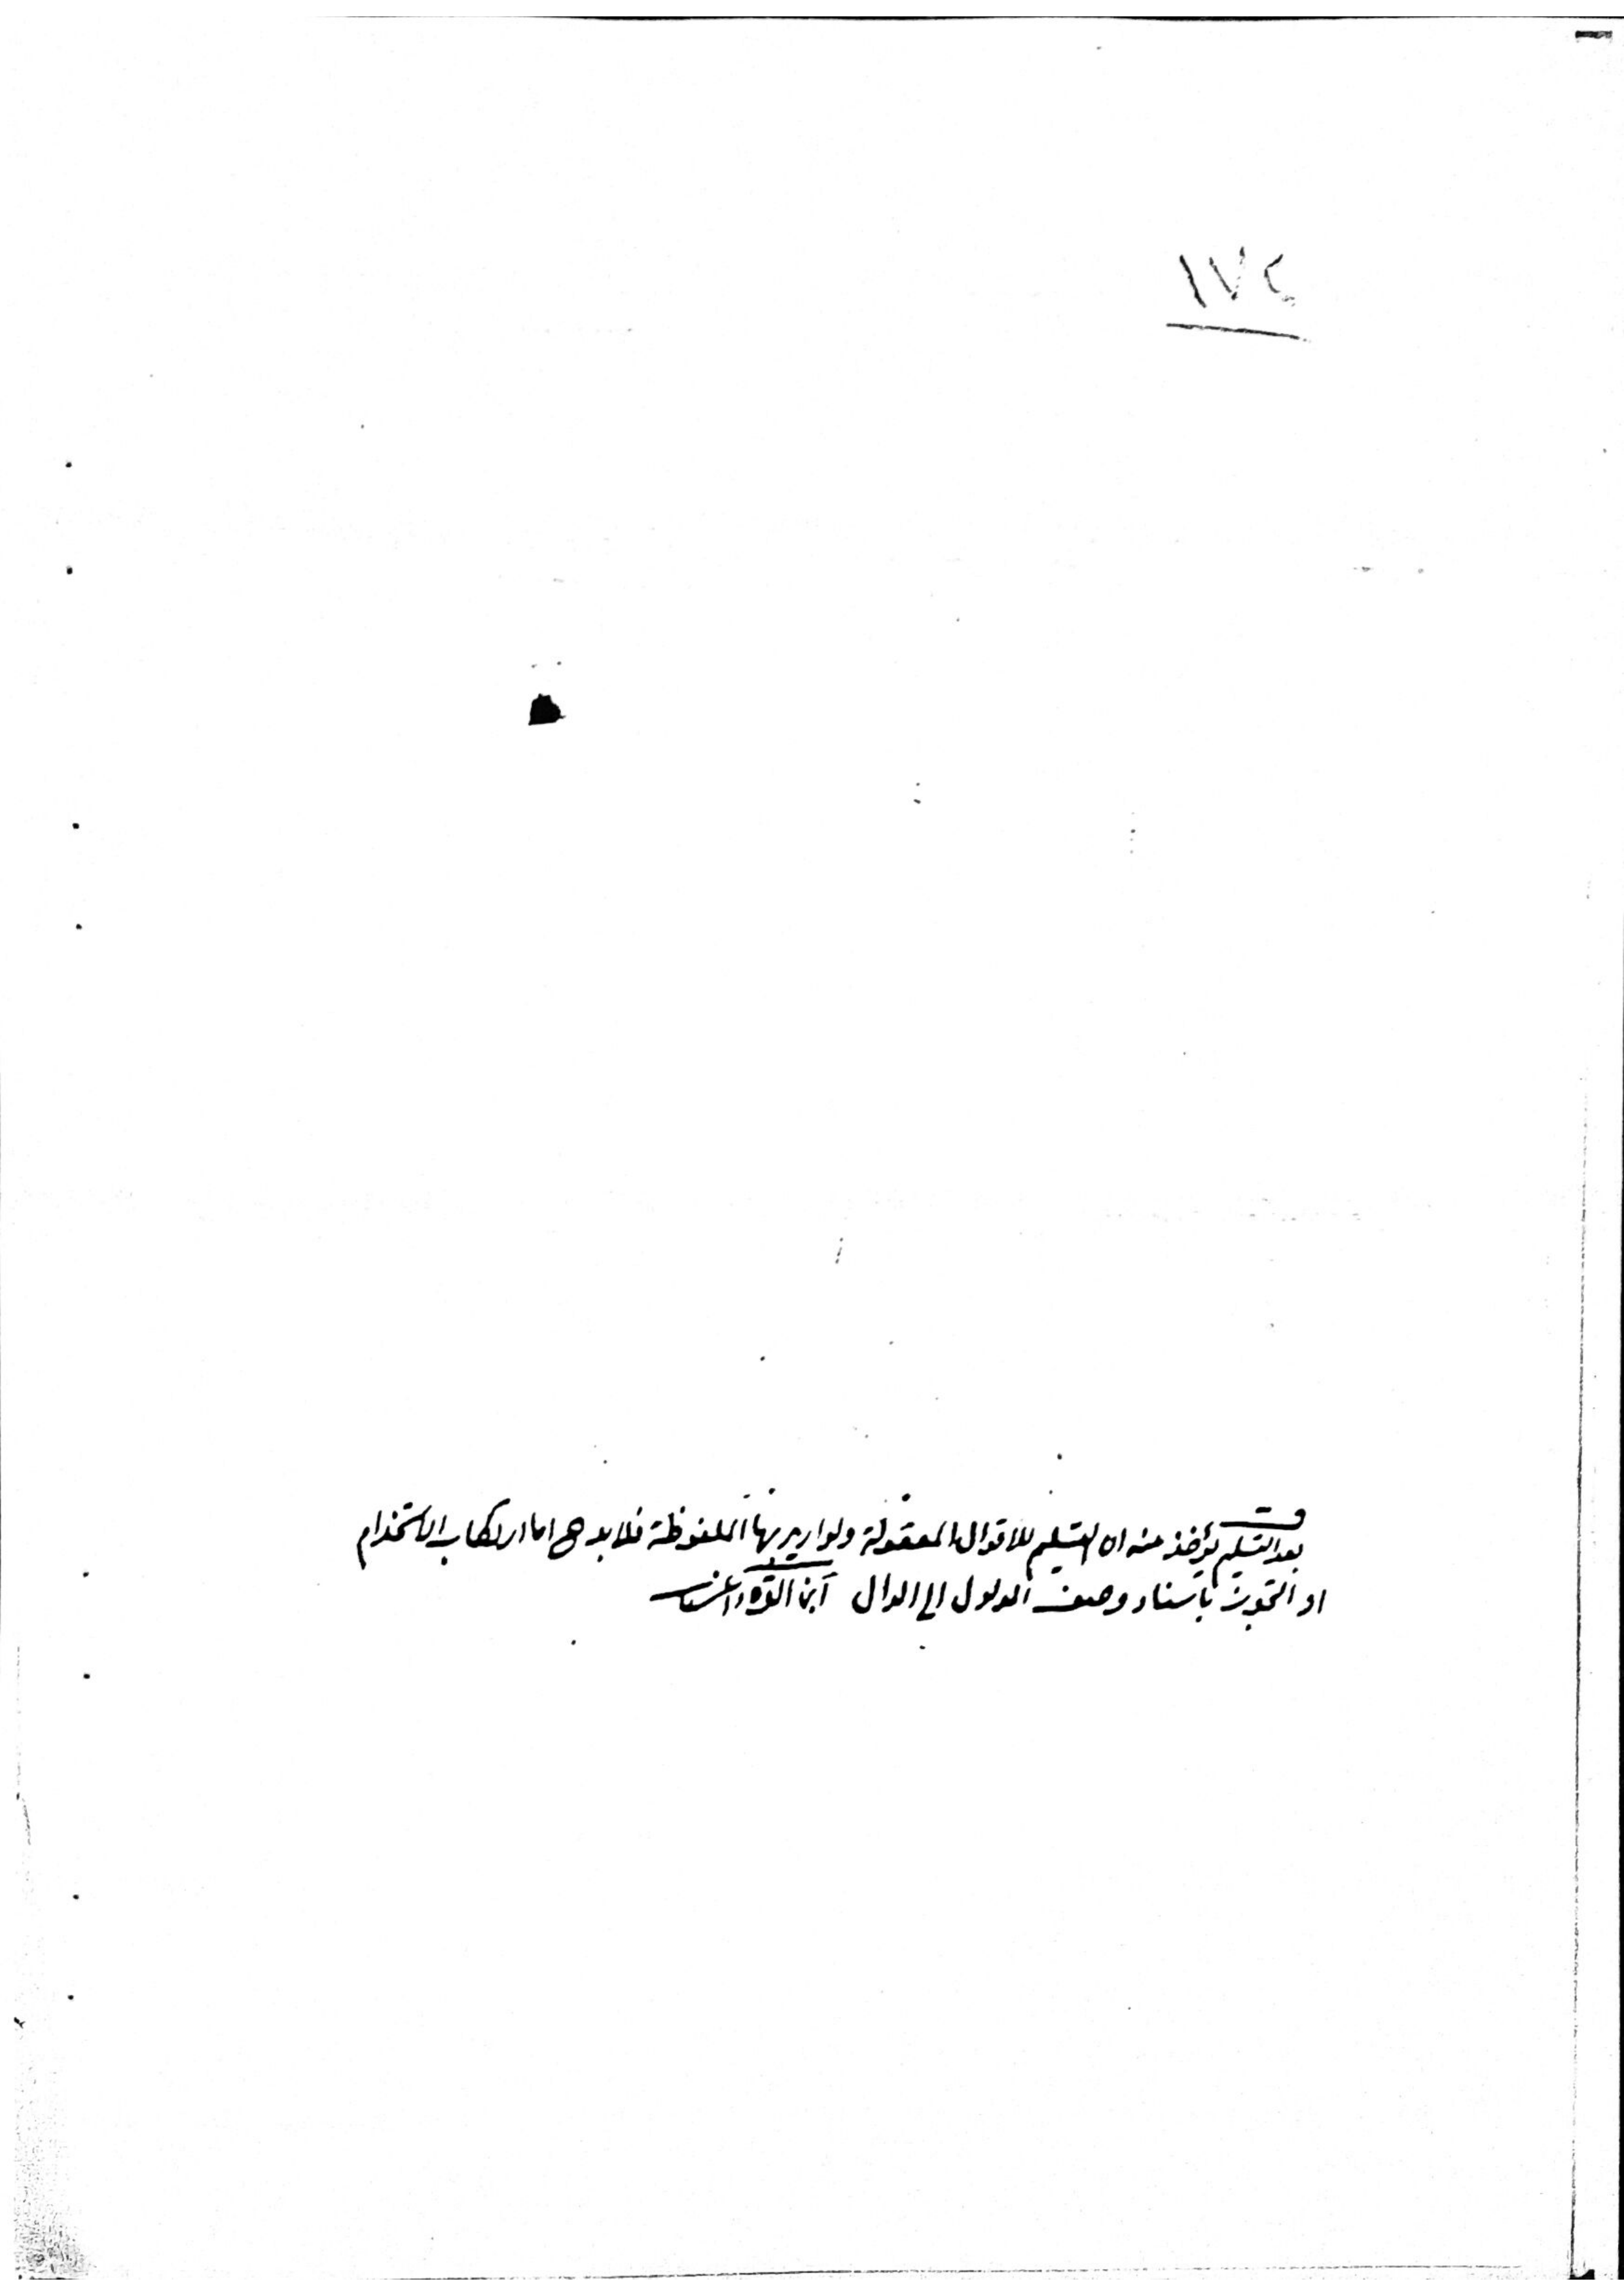 ١٧٢
بعد التسليم يؤخذ منه ان التسليم للاقوال المعقولة ولو اريد بها الملفوظة فلا بد ح اما ارتكاب الاستخدام
او التجوز باسناد وصف المدلول الى الدال ابن القره